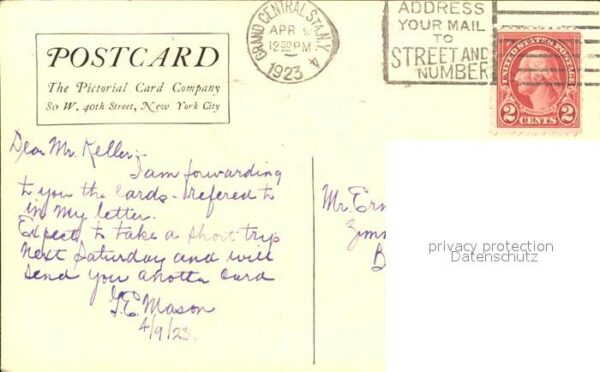 POSTCARD
The Pictorial Card Company
80 W. 40th Street, New York City
GRAND CENTRAL STA. N.Y.
APR 9
12:30PM
1923
4
ADDRESS
YOUR MAIL
TO
STREET AND
NUMBER
UNITED STATES POSTAGE
2 2
CENTS
Dear Mr. Keller:-
I am forwarding
to you the cards - refered to
in my letter.
Expect to take a short trip
next Saturday and will
send you another card
G. E. Mason
4/9/23.
Mr. Ern
Zimm
B
privacy protection
Datenschutz